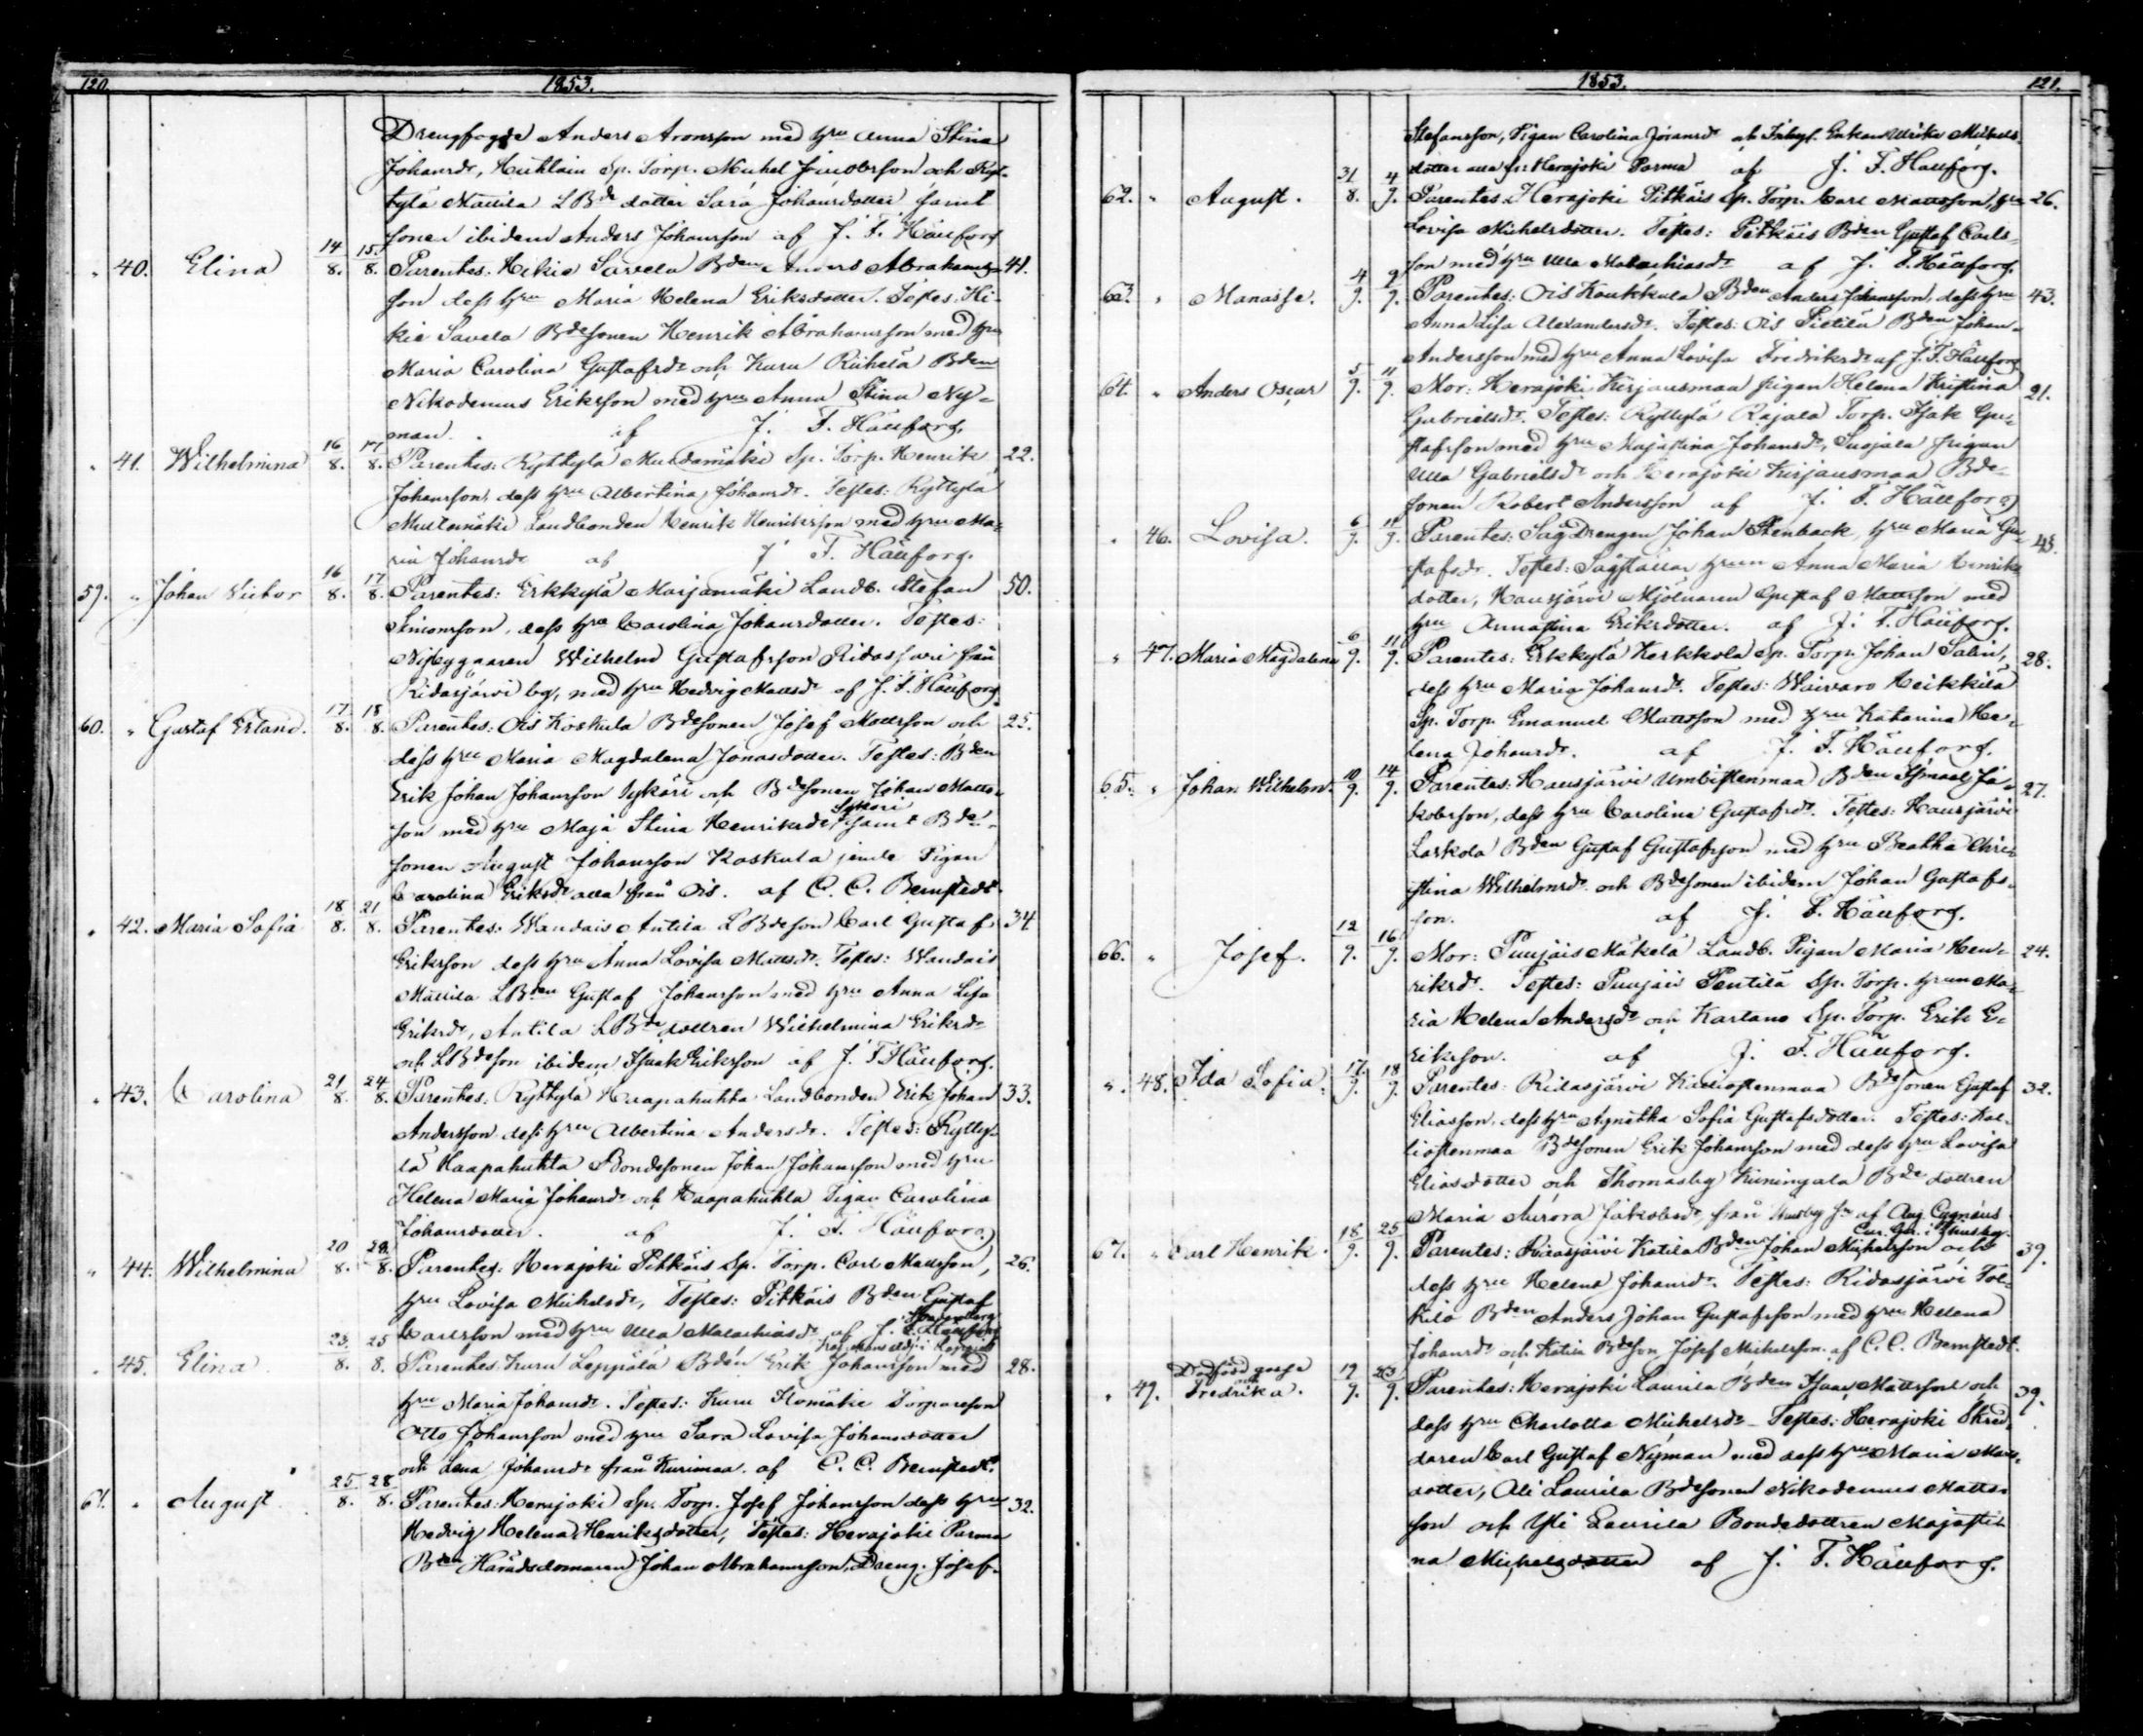 120. 1853.
Drengfogde Anders Aronsson med hru Anna Stina
Johansdr, Sp. Torp. Michel och Ryt-
tylä Mattila LBde dotter Sara Johansdotter samt
sonen ibidem Anders Johansson af J. T. Hällfors
" 40. Elina 14/8. 15/8. Parentes: Hikiä Savela Bden Anders Abrahams- 41.
son dess hru Maria Helena Eriksdotter. Testes: Hi-
kiä Savela Bdesonen Henrik Abrahamsson med hru
Maria Carolina Gustafsdr och Kuru Riihelä Bden
Nikodemus Eriksson med hru Anna Stina Ny-
man. af J. T. Hällfors.
" 41. Wilhelmina 16/8. 17/8. Parentes: Ryttylä Mustamäki Sp. Torp. Henrik 22.
Johansson, dess hru Albertina Johansdr. Testes: Ryttylä
Mustamäki Landbonden Henrik Henriksson med hru Ma-
ria Johansdr af J. T. Hällfors.
59. " Johan Victor 16/8. 17/8. Parentes: Erkkylä Marjamäki Landb. Stefan 50.
Simonsson, dess hru Carolina Johansdotter. Testes:
Nybyggaren Wilhelm Gustafsson Ridassaari från
Ridasjärvi by, med hru Hedvig Mattsdr af J. T. Hällfors
60. " Gustaf Erland. 17/8. 18/8. Parentes: Ois Koskula Bdesonen Josef Mattsson och 25.
dess hru Maria Magdalena Jonasdotter. Testes: Bden
Erik Johan Johansson Sykäri och Bdesonen Johan Matts-
son med hru Maja Stina Henriksdr Sykäri samt Bde-
sonen August Johansson Koskula jemte Pigan
Carolina Eriksdr alla från Ois. af C. C. Bernstedt.
" 42. Maria Sofia 18/8. 21/8. Parentes: Wandais Antila LBdeson Carl Gustaf 34
Eriksson dess hru Anna Lovisa Mattsdr. Testes: Wandais
Mattila LBden Gustaf Johansson med hru Anna Lisa
Eriksdr, Antila LBde dottren Wilhelmina Eriksdr
och LBdeson ibidem Isaak Eriksson af J. T. Hällfors.
" 43. Carolina 21/8. 24/8. Parentes: Ryttylä Haapahuhta Landbonden Erik Johan 33.
Andersson dess hru Albertina Andersdr. Testes: Rytty-
lä Haapahuhta Bondesonen Johan Johansson med hru
Helena Maria Johansdr och Haapahuhta Pigan Carolina
Johansdotter. af J. T. Hällfors.
" 44. Wilhelmina 20/8. 28/8. Parentes: Herajoki Pitkäis Sp. Torp. Carl Mattsson, 26.
hru Lovisa Michelsdr, Testes: Pitkäis Bden Gustaf
Carlsson med hru Ulla Malachiasdr af J. T. Hällfors
" 45. Elina 23/8. 25/8. Parentes: Kuru Leppälä Bden Erik Johansson med 28.
hru Maria Johansdr. Testes: Kuru Torpareson
Otto Johansson med hru Sara Lovisa Johansdotter
och Lena Johansdr från Kurimaa. af C. C. Bernstedt.
61. " August 25/8. 28/8. Parentes: Herajoki Sp. Torp. Josef Johansson dess hru 32.
Hedvig Helena Henriksdotter, Testes: Herajoki Parma
Bden Häradsdomaren Johan Abrahamsson, Dreng. Josef
1853. 121.
Stefansson, Pigan Carolina Göransdr och Inhys. Enkan Ulrika Michels-
dotter alla fr: Herajoki Parma af J. T. Hällfors.
62. " August. 31/8. 4/9. Parentes: Herajoki Pitkäis Sp. Torp. Carl Mattsson, hru 26.
Lovisa Michelsdotter. Testes: Pitkäis Bden Gustaf Carls-
son med hru Ulla Malachiasdr af J. T. Hällfors.
63. " Manasse. 4/9. 9/9. Parentes: Ois Koukkula Bden Anders Johansson, dess hru 43.
Anna Lisa Alexandersdr. Testes: Ois Sietilä Bden Johan
Andersson med hru Anna Lovisa Fredriksdr af J. T. Hällfors
64. " Anders Oscar 5/9. 11/9. Mor: Herajoki Kirjansmaa pigan Helena Kristina 21.
Gabrielsdr. Testes: Ryttylä Rajala Torp. Isak Gu-
stafsson med hru Majastina Johansdr, Suojala pigan
Ulla Gabrielsdr och Herajoki Kirjansmaa Bde-
sonen Robert Andersson af J. T. Hällfors
" 46. Lovisa. 6/9. 11/9. Parentes: Såg Drengen Johan Stenback, hru Maria Gu- 43.
stafsdr. Testes: Sågställar hrun Anna Maria Henriks-
dotter, Hausjärvi Mjölnaren Gustaf Mattsson med
hru Annastina Eriksdotter. af J. T. Hällfors.
" 47. Maria Magdalena 6/9. 11/9. Parentes: Erkkylä Kerkkola Sp. Torp. Johan Salin, 28.
dess hru Maria Johansdr. Testes: Waivaro Heikkilä
Sp. Torp. Emanuel Mattsson med hru Katarina He-
lena Johansdr. af J. T. Hällfors.
65. " Johan Wilhelm. 10/9. 14/9. Parentes: Hausjärvi Umbistenmaa Bden Ismael Ja- 27.
kobsson, dess hru Carolina Gustafsdr. Testes: Hausjärvi
Laskola Bden Gustaf Gustafsson med hru Beatha Chri-
stina Wilhelmsdr. och Bdesonen ibidem Johan Gustafs-
son. af J. T. Hällfors.
66. " Josef. 12/9. 16/9. Mor: Puujais Mäkelä Landb. Pigan Maria Hen- 24.
riksdr. Testes: Puujais Pentilä Sp. Torp. hrun Ma-
ria Helena Andersdr och Kartano Sp. Torp. Erik E-
riksson. af J. T. Hällfors.
" 48. Ida Sofia. 17/9. 18/9. Parentes: Ridasjärvi Kalliostenmaa Bdesonen Gustaf 32.
Eliasson, dess hru Agnetha Sofia Gustafsdotter. Testes: Kal-
liostenmaa Bdesonen Erik Johansson med dess hru Lovisa
Eliasdotter och Thomasby Kuningala Bde dottren
Maria Aurora Jakobsdr från af Aug. Cygnæus
67. " Carl Henrik. 18/9. 25/9. Parentes: Ridasjärvi Katila Bden Johan Michelsson och 39.
dess hru Helena Johansdr. Testes: Ridasjärvi Töl-
kilä Bden Anders Johan Gustafsson med hru Helena
Johansdr och Katila Bdeson Josef Michelsson. af C. C. Bernstedt.
" 49. Dödfödd gosse och Fredrika. 19/9. 23/9. Parentes: Herajoki Laurila Bden Isaac Mattsson och 39.
dess hru Charlotta Michelsdr. Testes: Herajoki Skräd-
daren Carl Gustaf Nyman med dess hru Maria Matts-
dotter, Ali Laurila Bdesonen Nikodemus Matts-
son och Yli Laurila Bondedottren Majasti-
na Michelsdotter af J. T. Hällfors.